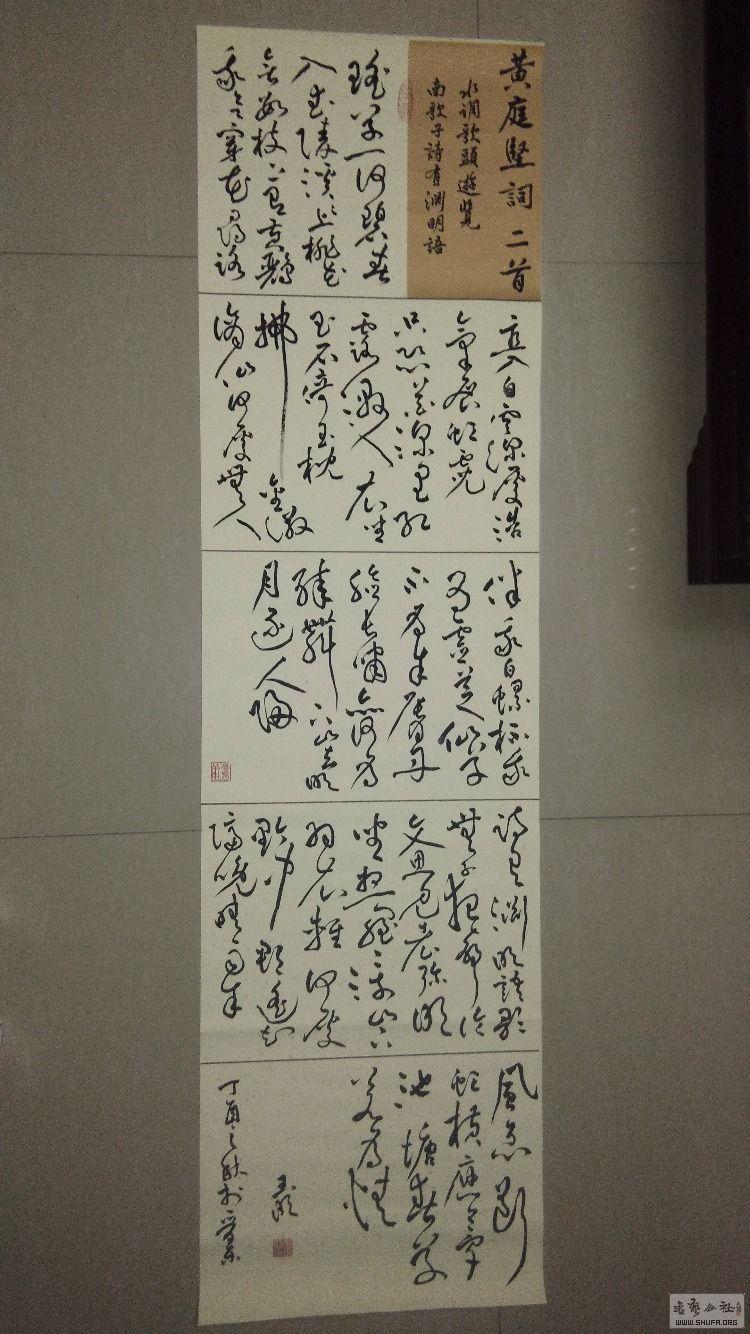 黃庭堅詞二首
水调歌頭遊覽
南歌子詩有渊明語
瑶草一何碧春
入武陵溪溪上桃花
無數枝上有黃鸝
我欲穿花尋路
直入白雲深處浩
氣展虹霓
只恐花深里紅
露濕人衣坐
玉石倚玉枕
拂金徽
謫仙何處無人
伴我白螺杯我
为靈芝仙子
不为朱唇丹
臉長嘯亦何为
醉舞下山去明
月逐人歸
詩有渊明語歌
無子夜聲論
文思見老彌明
坐想羅浮山下
羽衣輕何處
黔中郡遥知
隔晚晴雨
風急断
虹橫應夢
池塘春草
若为情
丁酉之秋於
書藝公社
WWW.SHUFA.ORG